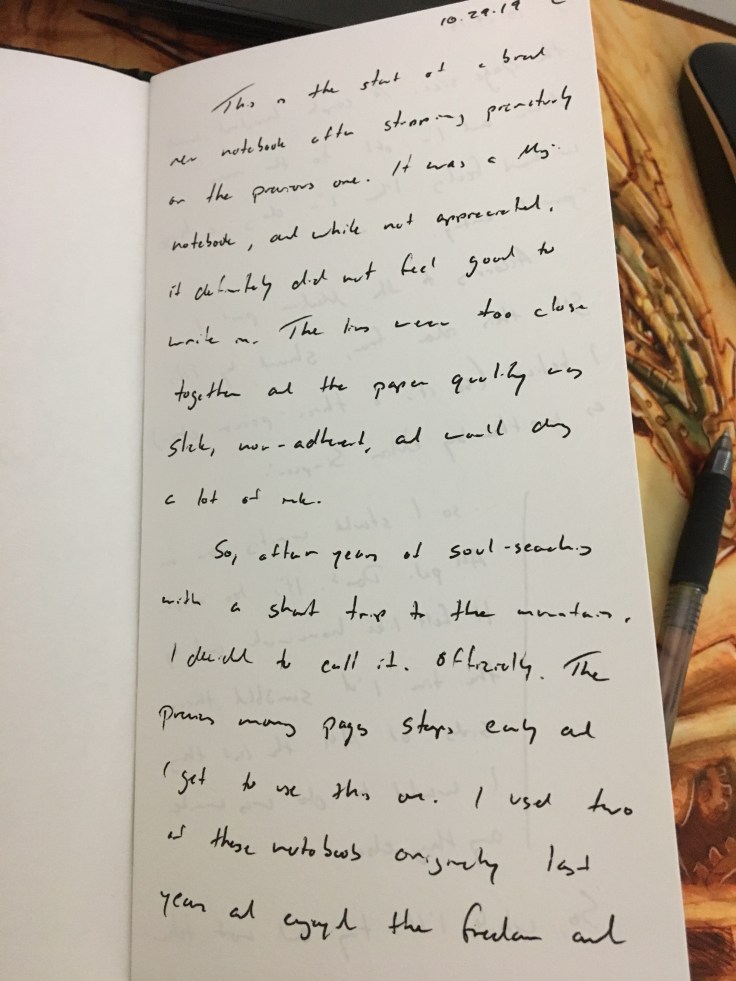 10.29.19
This is the start of a brand
new notebook after stopping prematurely
on the previous one. It was a
notebook, and while not appreciated,
it definitely did not feel good to
write in. The lines were too close
together and the paper quality was
slick, non-adherent, and would dry
a lot of ink.
So, after years of soul-searching
with a short trip to the mountains,
I decided to call it. Officially. The
previous morning pages stops early and
I get to use this one. I used two
of these notebooks originally last
year and enjoyed the freedom and